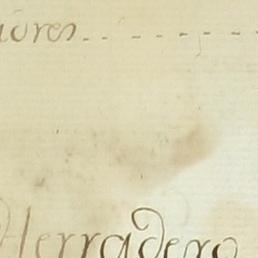 iores
Herradero